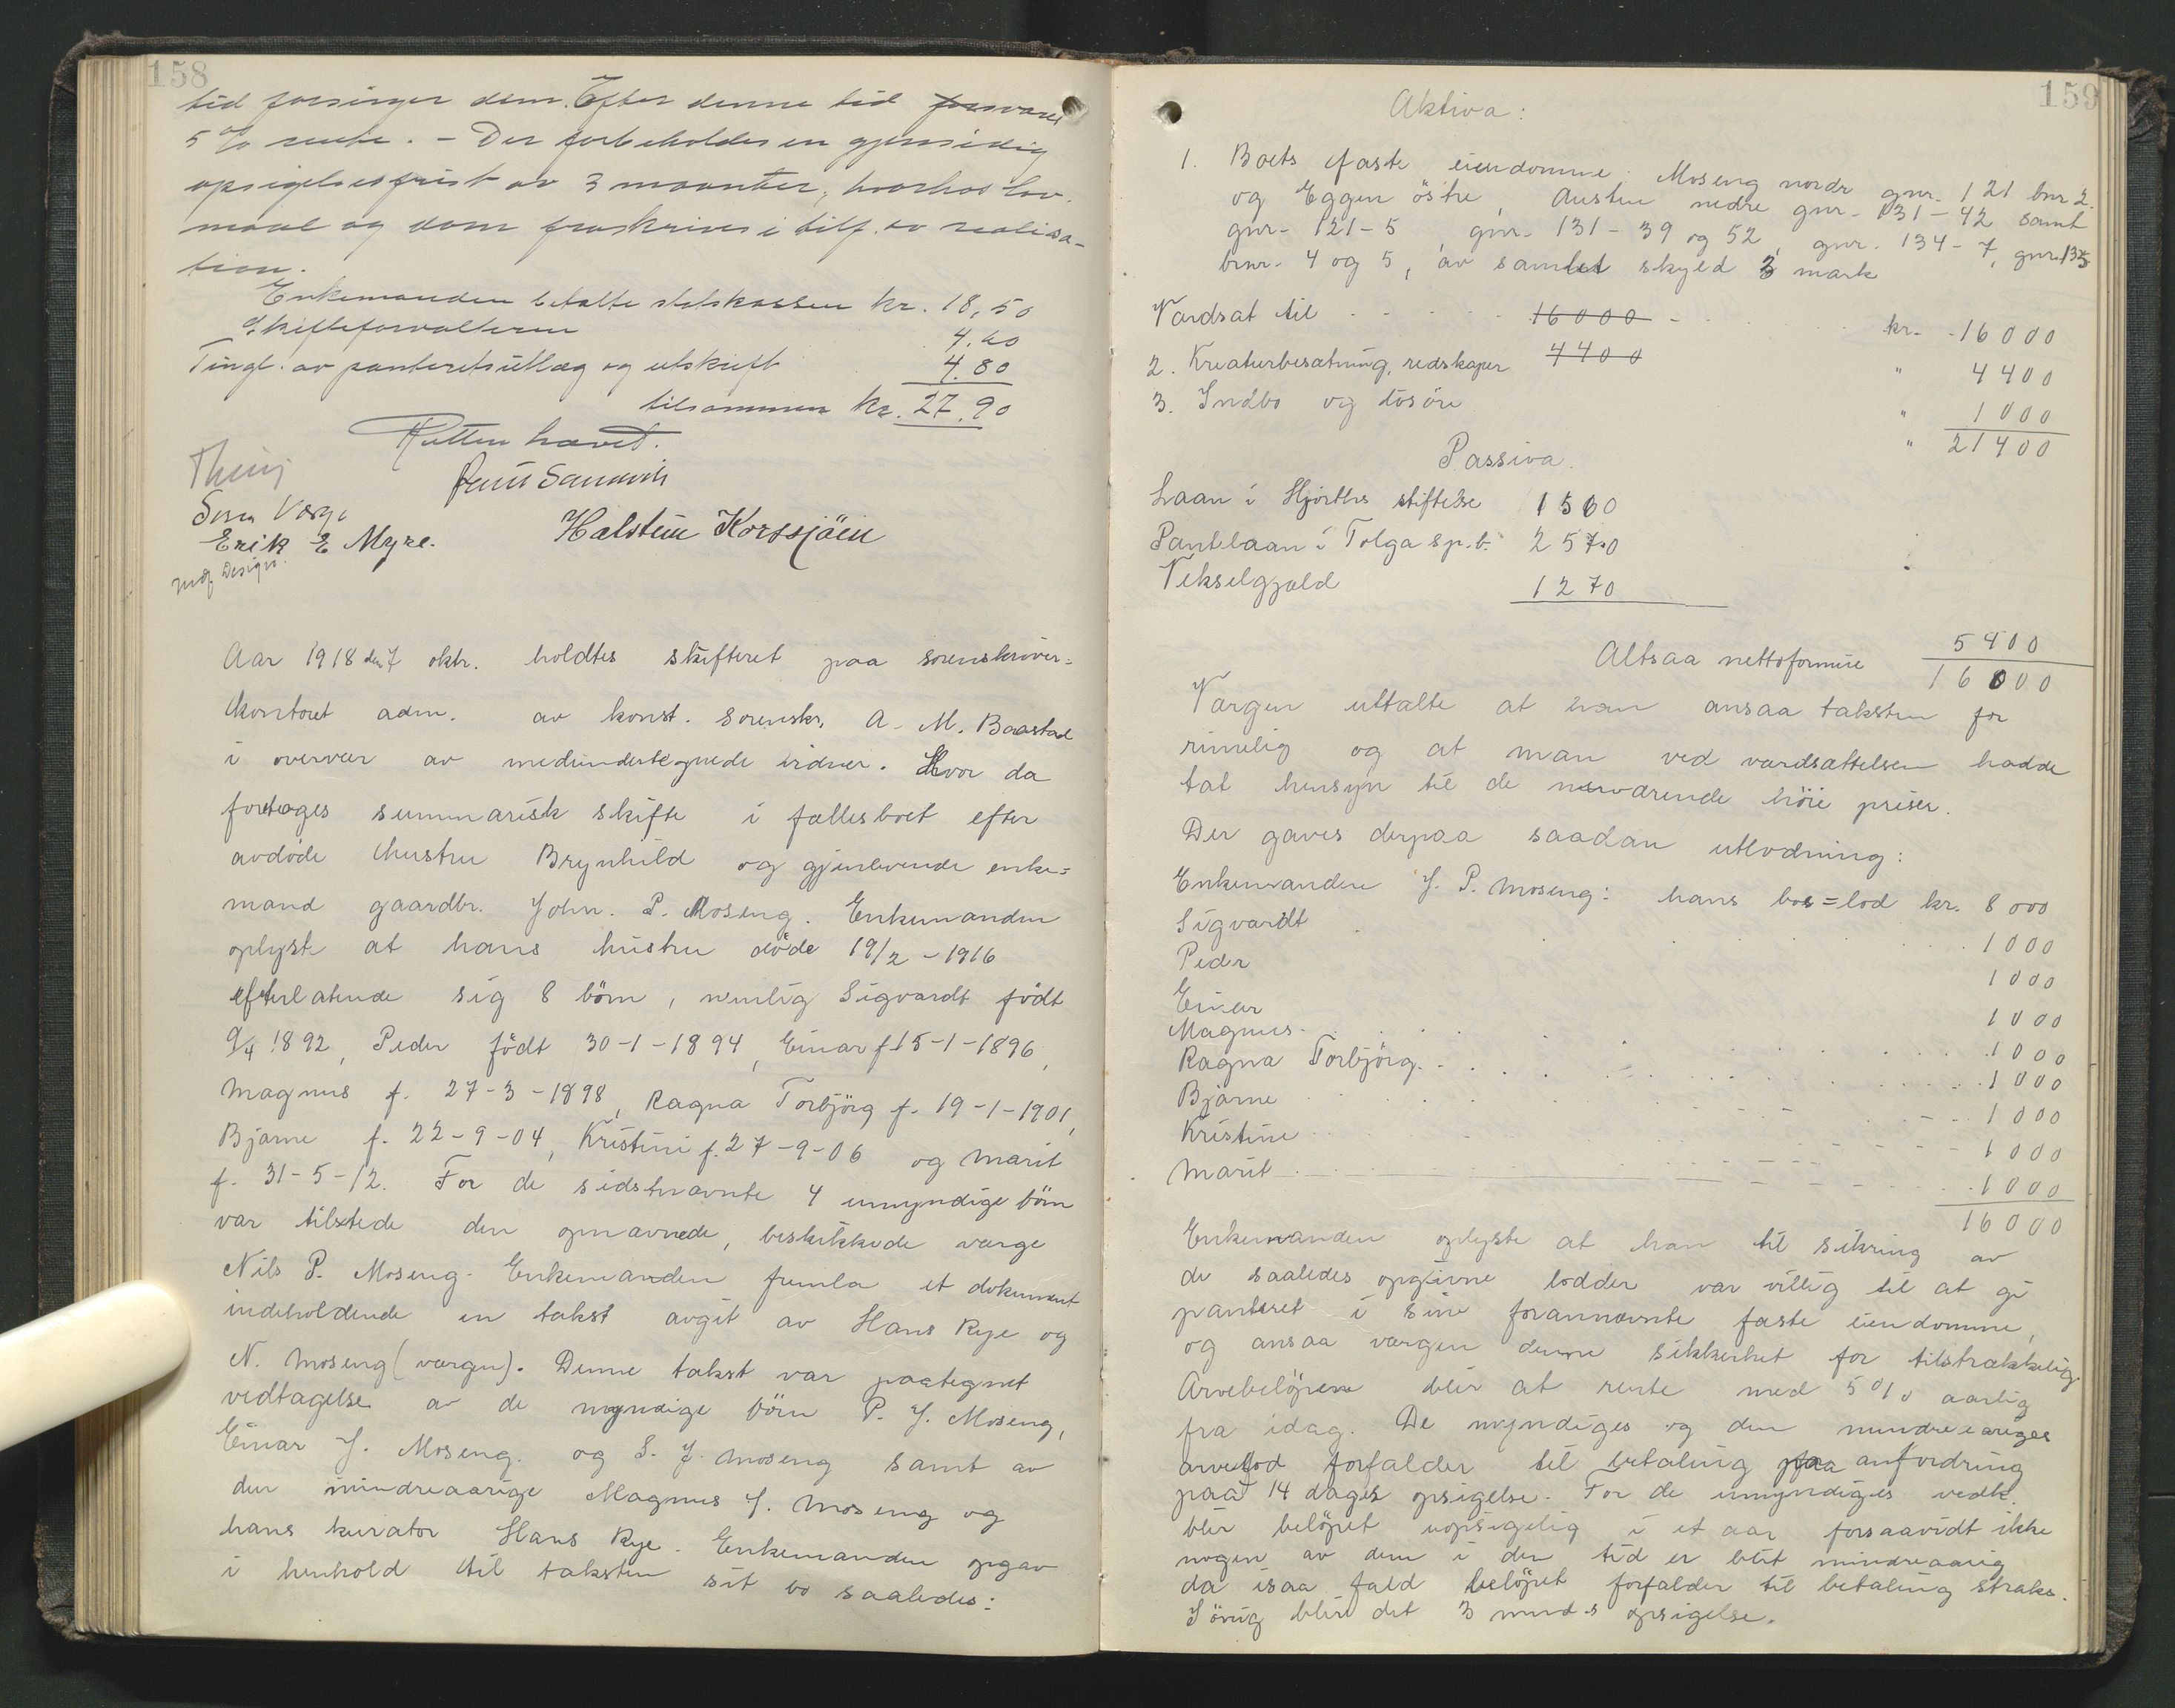 158
tid forsinger dem. Efter denne tid forsvares
5 % rente. - Der forbeholdes en gjensidig
opsigelsesfrist av 3 maaneder, hvorhos lov-
maal og dom fraskrives i tilf. av realisa-
tion.
Enkemanden betalte statskassen kr. 18,50
Skifteforvalteren 4.60
Tingl. av panteretsutlæg og utskrift 4.80
tilsammen kr. 27.90
Retten hævet.
Som Verge
Erik E Myre. Halstein Korssjöen
Aar 1918 den 7 oktr. holdtes skifteret paa sorenskriver-
kontoret adm. av konst. sorenskr. A. M. Baastad
i overvær av medundertegnede vidner. Hvor da
foretoges summarisk skifte i fællesboet efter
avdöde hustru Brynhild og gjenlevende enke-
mand gaardbr. John. P. Moseng. Enkemanden
oplyste at hans hustru döde 19/2 - 1916
efterlatende sig 8 börn, nemlig Sigvardt födt
9/4 1892, Peder födt 30-1-1894, Einar f. 15-1-1896,
Magnus f. 27-3-1898, Ragna Torbjörg f. 19-1-1901,
Bjarne f. 22-9-04, Kristine f. 27-9-06 og Marit
f. 31-5-12. For de sidstnævnte 4 umyndige börn
var tilstede den opnævnede, beskikkede værge
Nils P. Moseng. Enkemanden fremla et dokument
indeholdende en takst avgit av Hans Rye og
N. Moseng (værgen). Denne takst var paategnet
vedtagelse av de myndige börn P. J. Moseng,
Einar J. Moseng. og S. J. Moseng samt av
den mindreaarige Magnus J. Moseng og
hans kurator Hans Rye. Enkemanden opgav
i henhold til taksten sit bo saaledes:
159
Aktiva:
1. Boets faste eiendomme: Moseng nordr gnr. 121 bnr 2.
og Eggen östre, Austen nedre gnr. 131-42 samt
gnr. 121-5, gnr. 131-39 og 52, gnr. 134-7, gnr. 135
bnr. 4 og 5, av samlet skyld 3 mark
Værdsat til 16000 kr. 16000
2. Kreaturbesætning, redskaper 4400 " 4400
3. Indbo og lösöre " 1000
" 21400
Passiva.
Laan i Hjorths stiftelse 1560
Pantelaan i Tolga sp.b. 2570
Vekselgjæld 1270
5400
Altsaa nettoformue 16000
Værgen uttalte at han ansaa taksten for
rimelig og at man ved værdsættelsen hadde
tat hensyn til de nuværende höie priser.
Der gaves derpaa saadan utlodning:
Enkemanden J. P. Moseng: hans bos=lod kr. 8000
Sigvardt 1000
Peder 1000
Einar 1000
Magnus 1000
Ragna Torbjörg 1000
Bjarne 1000
Kristine 1000
Marit 1000
16000
Enkemanden oplyste at han til sikring av
de saaledes opgivne lodder var villig til at gi
panteret i sine forannævnte faste eiendomme,
og ansaa værgen denne sikkerhet for tilstrækkelig.
Arvebelöpene blir at rente med 5 % aarlig
fra idag. De myndiges og den mindreaariges
arvelod forfalder til betaling paa anfordring
paa 14 dages opsigelse. For de umyndiges vedk.
blir belöpet uopsigelig i et aar forsaavidt ikke
nogen av dem i den tid er blit mindreaarig
da isaa fald belöpet forfalder til betaling straks.
I övrig blir det 3 mnd.s opsigelse.